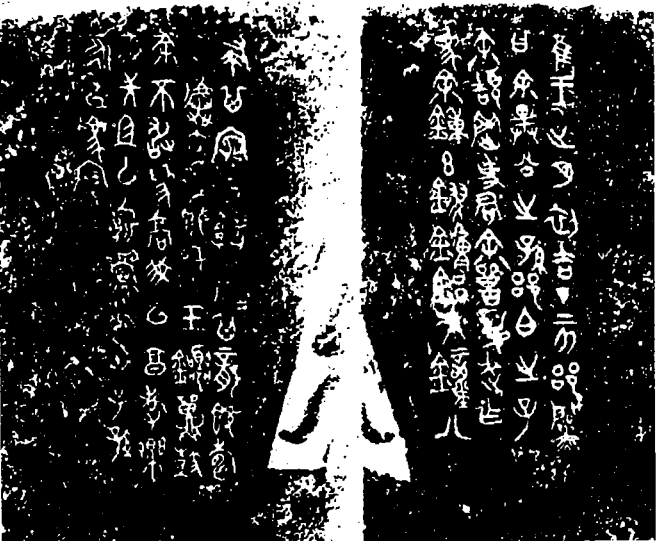 隹王正月初吉丁亥郘黛
曰余畢公之孫郘白之子
余頡岡事君余嘼丮武乍
為余鐘玄鏐鏞鋁大鐘八
聿其竈四堵喬喬其龍既
鬯虡大鐘既縣玉鐺鼉鼓
余不敢為喬我以享孝樂
我先且以祈眉壽世世子孫
永以為寶